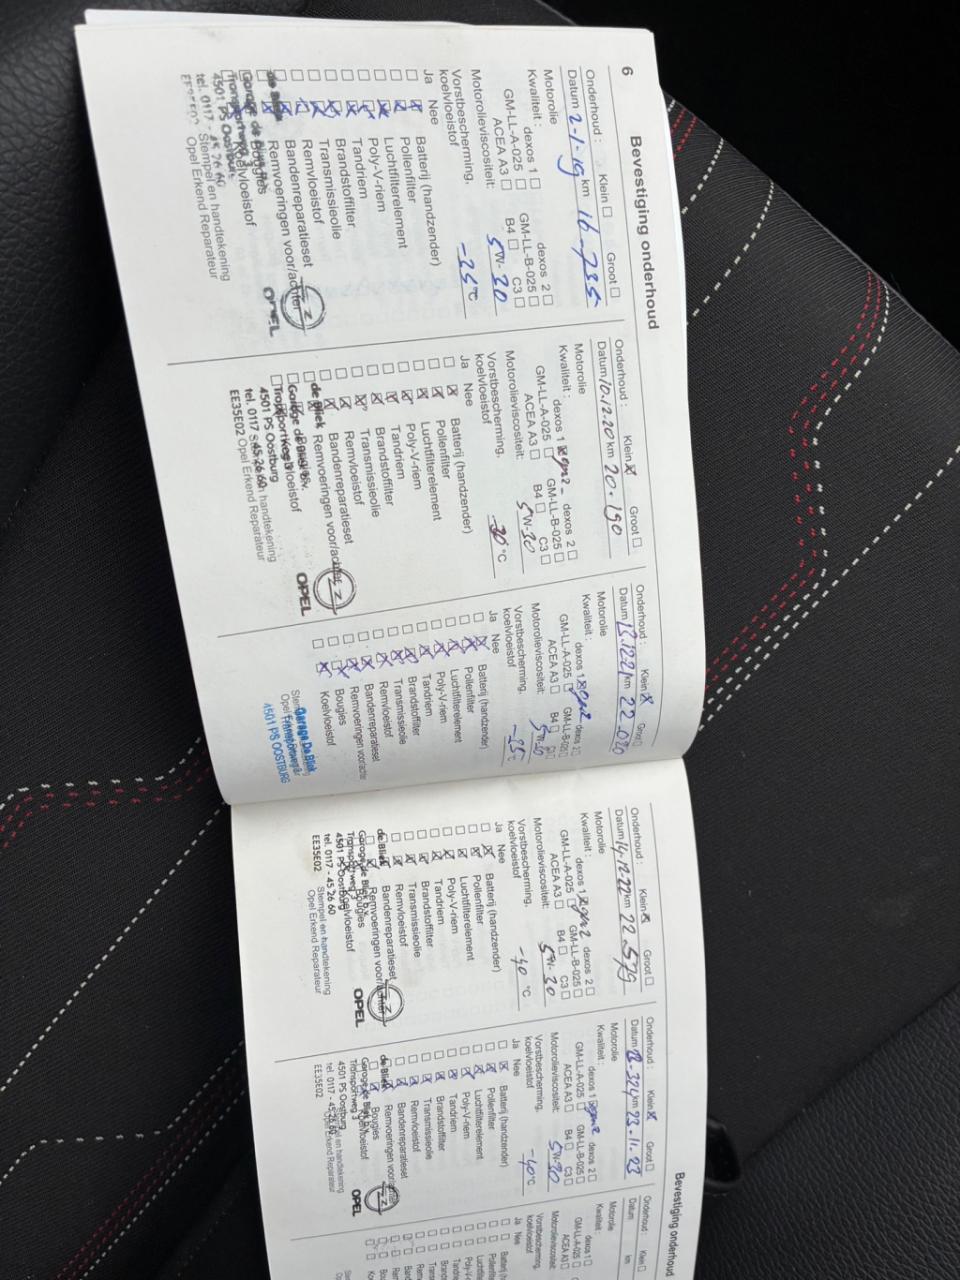 6
Bevestiging onderhoud
Onderhoud: Klein Groot
Datum 2-1-19 km 16-735
Motorolie
Kwaliteit: dexos 1 dexos 2
GM-LL-A-025 GM-LL-B-025
ACEA A3 B4 C3
Motorolieviscositeit: 5W-30
Vorstbescherming, koelvloeistof -25°C
Ja Nee
Batterij (handzender)
Pollenfilter
Luchtfilterelement
Poly-V-riem
Tandriem
Brandstoffilter
Transmissieolie
Remvloeistof
Bandenreparatieset
Remvoeringen voor/achter
Bougies
Koelvloeistof
de Bliek
Garage de Bliek b.v.
Transportweg 3
4501 PS Oostburg
tel. 0117 - 45 26 60
Stempel en handtekening
Opel Erkend Reparateur
OPEL
Onderhoud: Klein Groot
Datum 10.12.20 km 20.190
Motorolie
Kwaliteit: dexos 1 dexos 2
GM-LL-A-025 GM-LL-B-025
ACEA A3 B4 C3
Motorolieviscositeit: 5W-30
Vorstbescherming, koelvloeistof -30°C
Ja Nee
Batterij (handzender)
Pollenfilter
Luchtfilterelement
Poly-V-riem
Tandriem
Brandstoffilter
Transmissieolie
Remvloeistof
Bandenreparatieset
Remvoeringen voor/achter
de Bliek
Garage de Bliek b.v.
Transportweg 3
4501 PS Oostburg
tel. 0117 - 45 26 60
EE35E02
Opel Erkend Reparateur
OPEL
Onderhoud: Klein Groot
Datum km 22.020
Motorolie
Kwaliteit: dexos 1 dexos 2
GM-LL-A-025 GM-LL-B-025
ACEA A3 B4
Motorolieviscositeit: 5W-30
Vorstbescherming, koelvloeistof -35°C
Ja Nee
Batterij (handzender)
Pollenfilter
Luchtfilterelement
Poly-V-riem
Tandriem
Brandstoffilter
Transmissieolie
Remvloeistof
Bandenreparatieset
Remvoeringen voor/achter
Bougies
Koelvloeistof
Garage De Bliek
Transportweg 3
4501 PS OOSTBURG
Onderhoud: Klein Groot
Datum 14.12.22 km 22.579
Motorolie
Kwaliteit: dexos 1 dexos 2
GM-LL-A-025 GM-LL-B-025
ACEA A3 B4 C3
Motorolieviscositeit: 5W-30
Vorstbescherming, koelvloeistof -40°C
Ja Nee
Batterij (handzender)
Pollenfilter
Luchtfilterelement
Poly-V-riem
Tandriem
Brandstoffilter
Transmissieolie
Remvloeistof
Bandenreparatieset
Remvoeringen voor/achter
Bougies
Koelvloeistof
de Bliek
Garage de Bliek b.v.
Transportweg 3
4501 PS Oostburg
tel. 0117 - 45 26 60
EE35E02
Stempel en handtekening
Opel Erkend Reparateur
OPEL
Bevestiging onderhoud
Onderhoud: Klein Groot
Datum km 23-11-23
Motorolie
Kwaliteit: dexos 1 dexos 2
GM-LL-A-025 GM-LL-B-025
ACEA A3 B4 C3
Motorolieviscositeit: 5W-30
Vorstbescherming, koelvloeistof -40°C
Ja Nee
Batterij (handzender)
Pollenfilter
Luchtfilterelement
Poly-V-riem
Tandriem
Brandstoffilter
Transmissieolie
Remvloeistof
Bandenreparatieset
Remvoeringen voor/achter
Bougies
Koelvloeistof
de Bliek
Garage de Bliek b.v.
Transportweg 3
4501 PS Oostburg
tel. 0117 - 45 26 60
EE35E02
Opel Erkend Reparateur
OPEL
Onderhoud: Klein
Datum km
Motorolie
Kwaliteit: dexos 1
GM-LL-A-025
ACEA A3
Motorolieviscositeit:
Vorstbescherming, koelvloeistof
Ja Nee